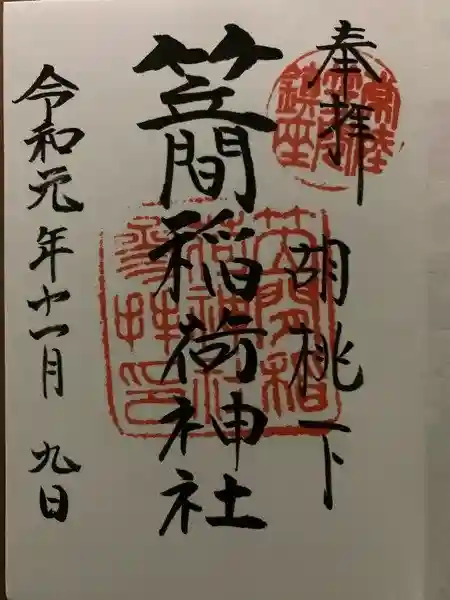 奉拝
胡桃下
笠間稲荷神社
令和元年十一月九日
常陸
笠間
鎮座
笠間稲
荷神社
参拝印